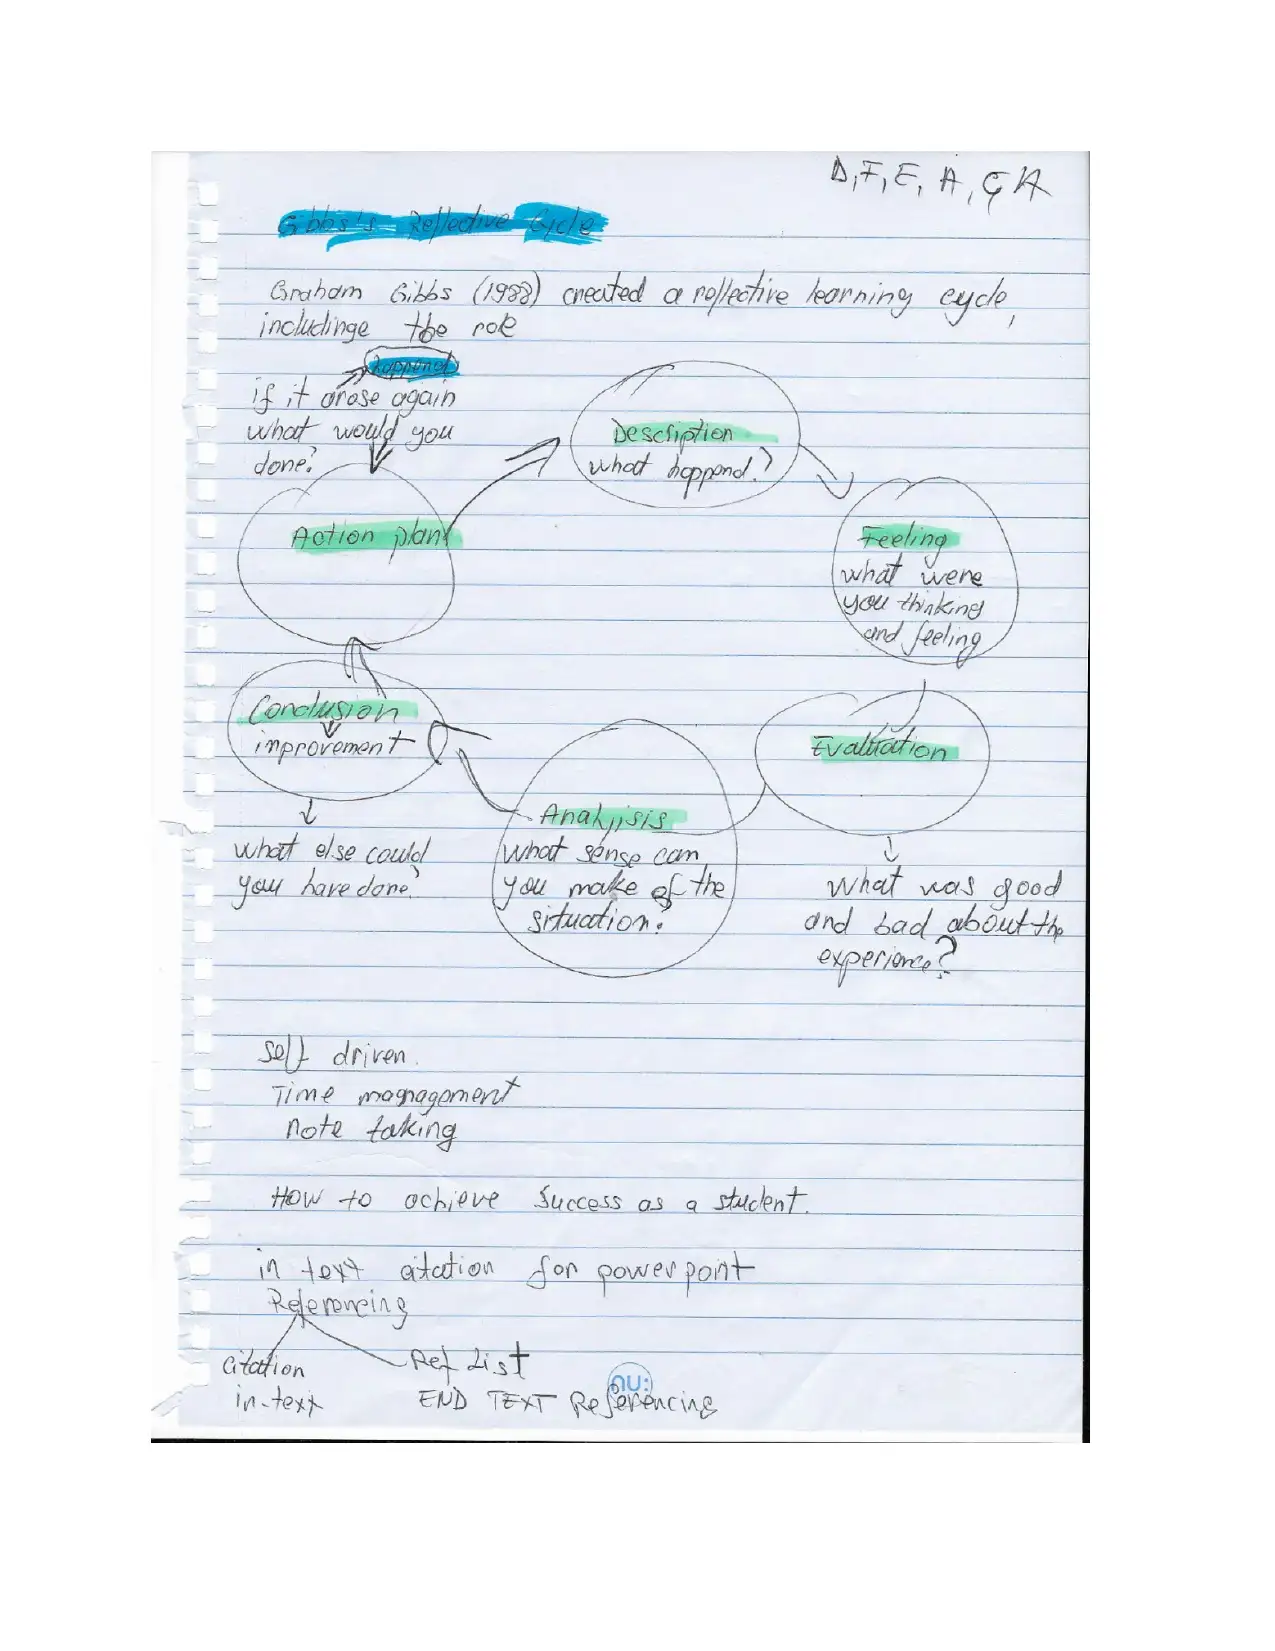 D, F, E, A, C, A
Gibbs's Reflective Cycle
Graham Gibbs (1988) created a reflective learning cycle,
includinge the role
happend
if it arose again
what would you
done?
Description
what happend?
Action plan
Feeling
what were
you thinking
and feeling
Conclusion
improvement
Evaluation
Analjisis
what sense can
you make of the
situation?
what else could
you have done?
What was good
and bad about the
experience?
Self driven.
Time management
note taking
HOW to achieve Success as a student.
in text citation for powerpoint
Referencing
Citation
in-text
Ref List
END TEXT Referencing
nu: